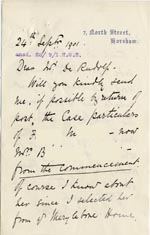 7, North Street,
Horsham.
24th Septr 1901.
Dear Mr. De Rudolf.
Will you kindly send
me, if possible by return of
post, the Case particulars
of F. M - now
Mrs. B
From the commencement
of course I know about
her since I selected her
from yr Marylebone Home